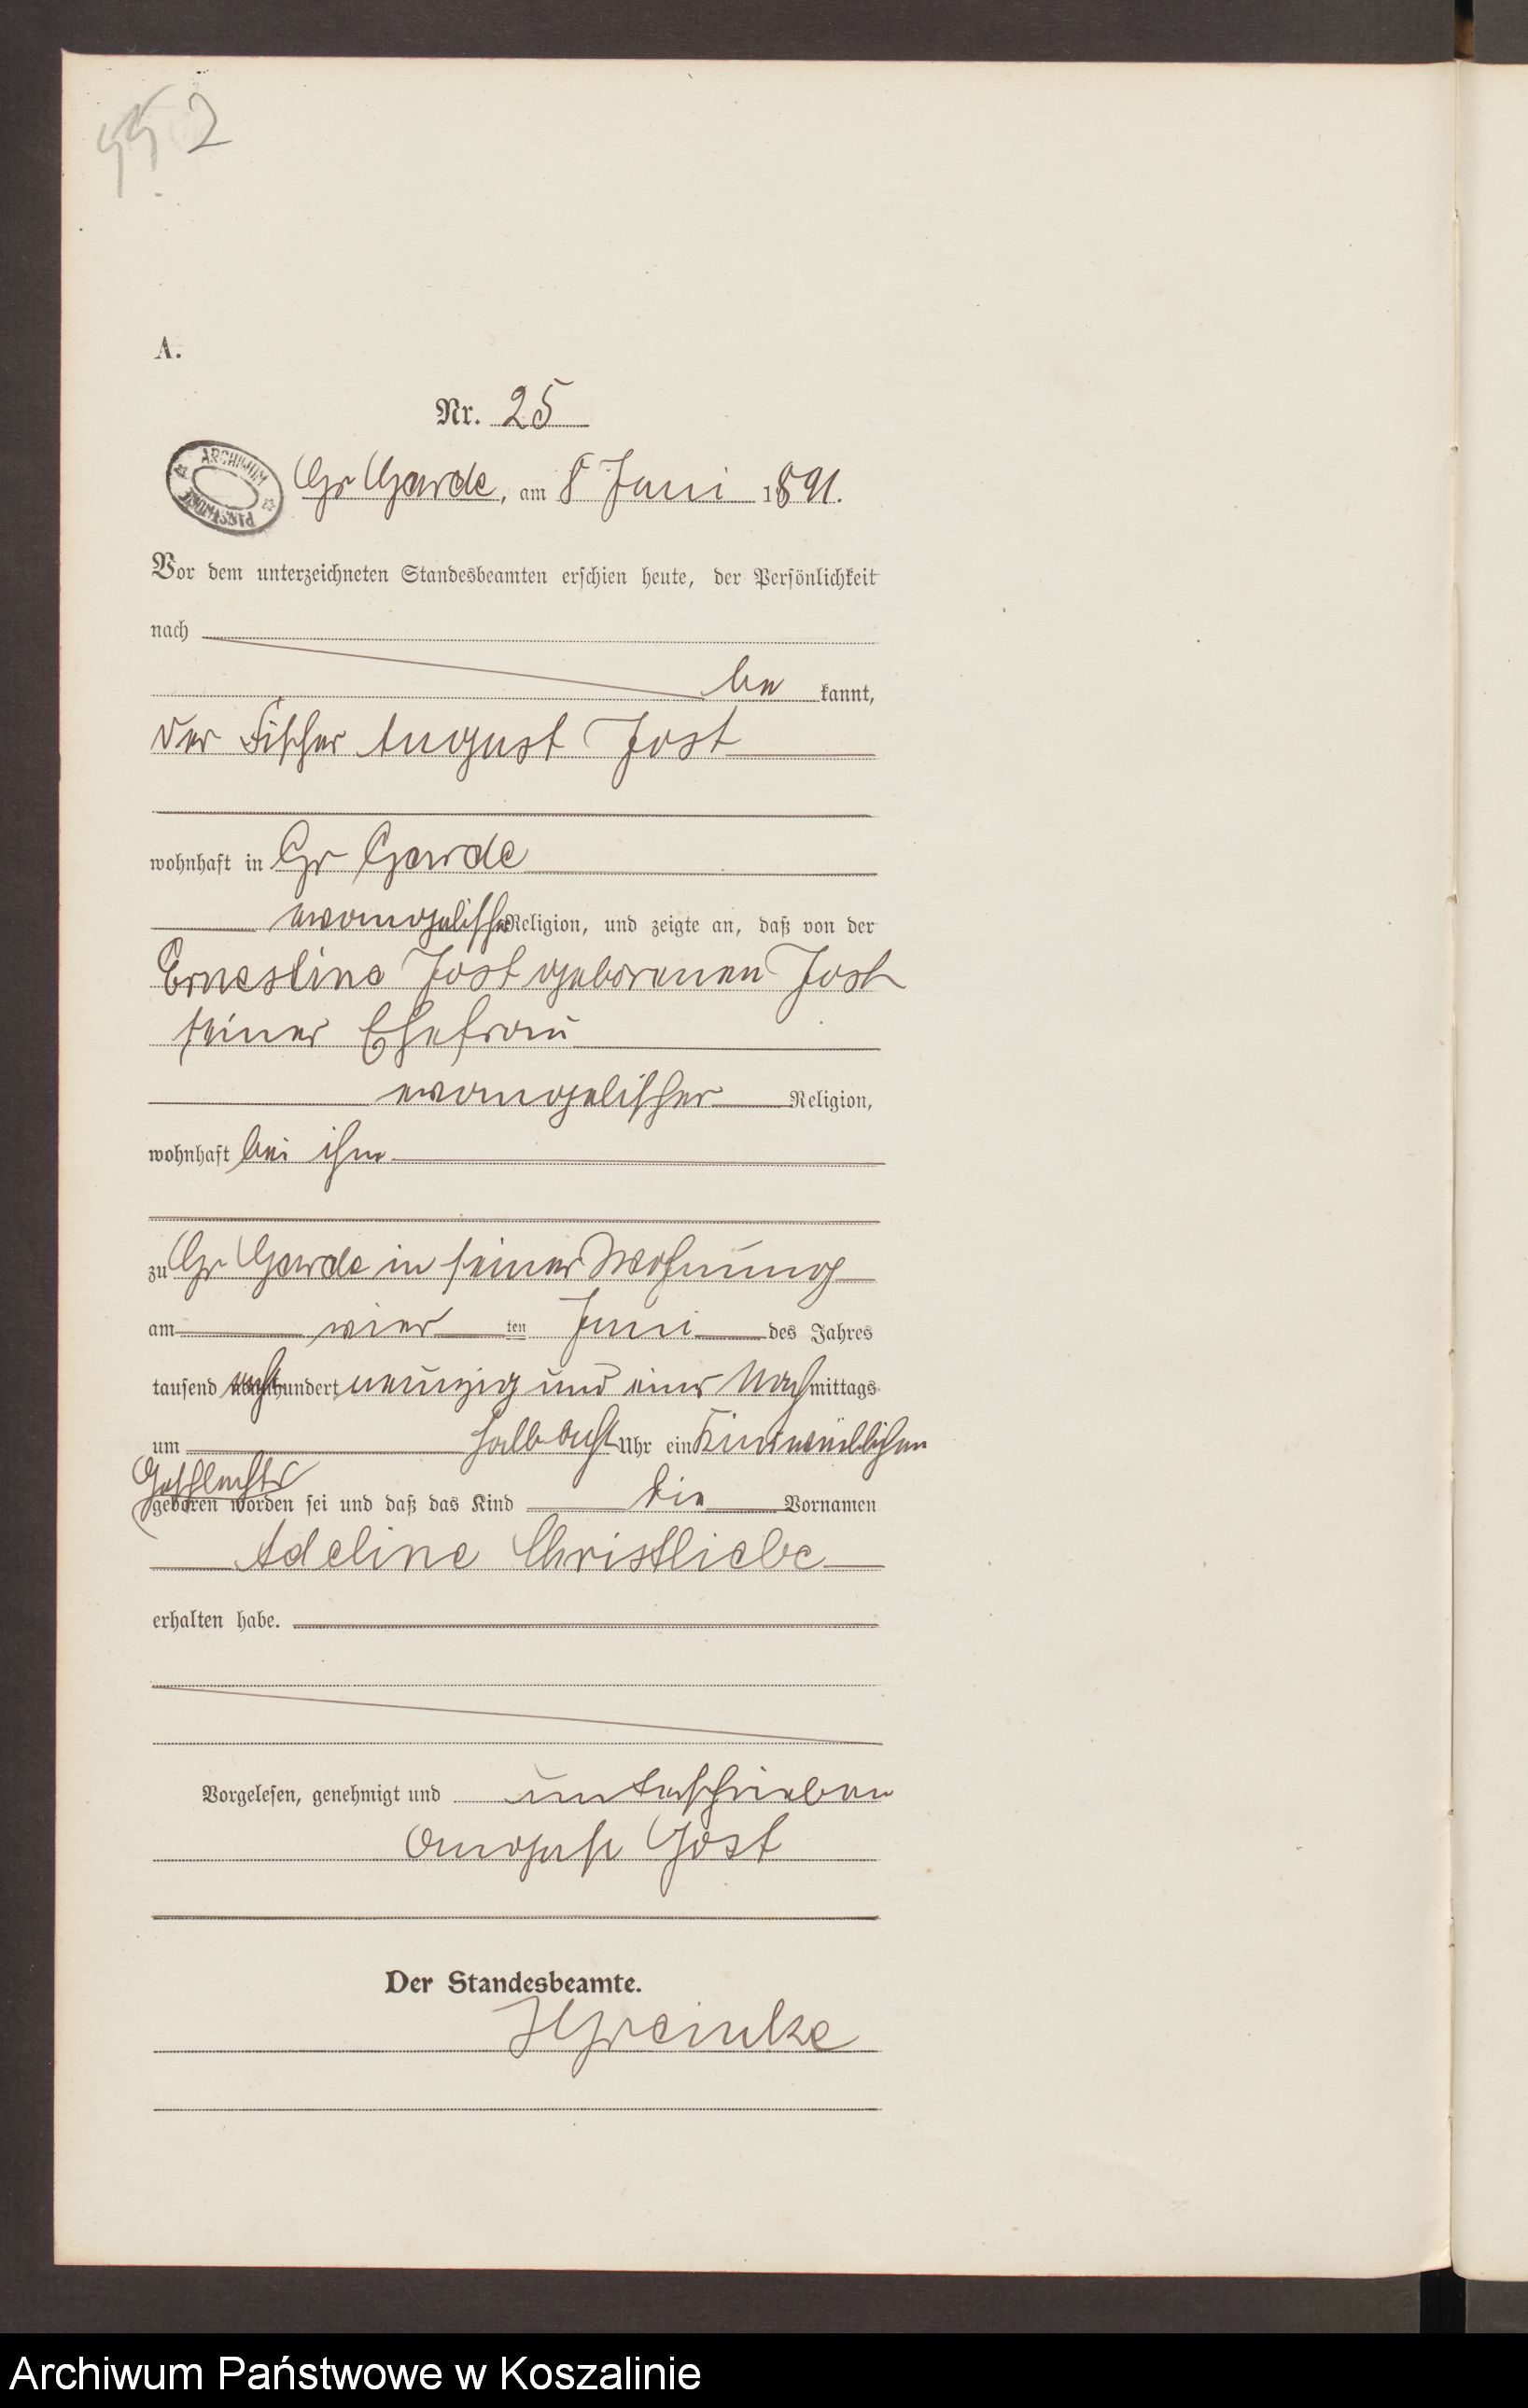 2
A.
Nr. 25
ARCHIWUM PAŃSTWOWE
Gr Garde, am 8 Juni 1891.
Vor dem unterzeichneten Standesbeamten erschien heute, der Persönlichkeit
nach
be kannt,
der Fischer August Jost
wohnhaft in Gr Garde
evangelischer Religion, und zeigte an, daß von der
Ernestine Jost geborenen Jost
seiner Ehefrau
evangelischer Religion,
wohnhaft bei ihm
zu Gr Garde in seiner Wohnung
am vier ten Juni des Jahres
tausend achthundert neunzig und eins Nachmittags
um halb acht Uhr ein Kind weiblichen
Geschlechts
geboren worden sei und daß das Kind die Vornamen
Adeline Christliebe
erhalten habe.
Vorgelesen, genehmigt und unterschrieben
August Jost
Der Standesbeamte.
Archiwum Państwowe w Koszalinie